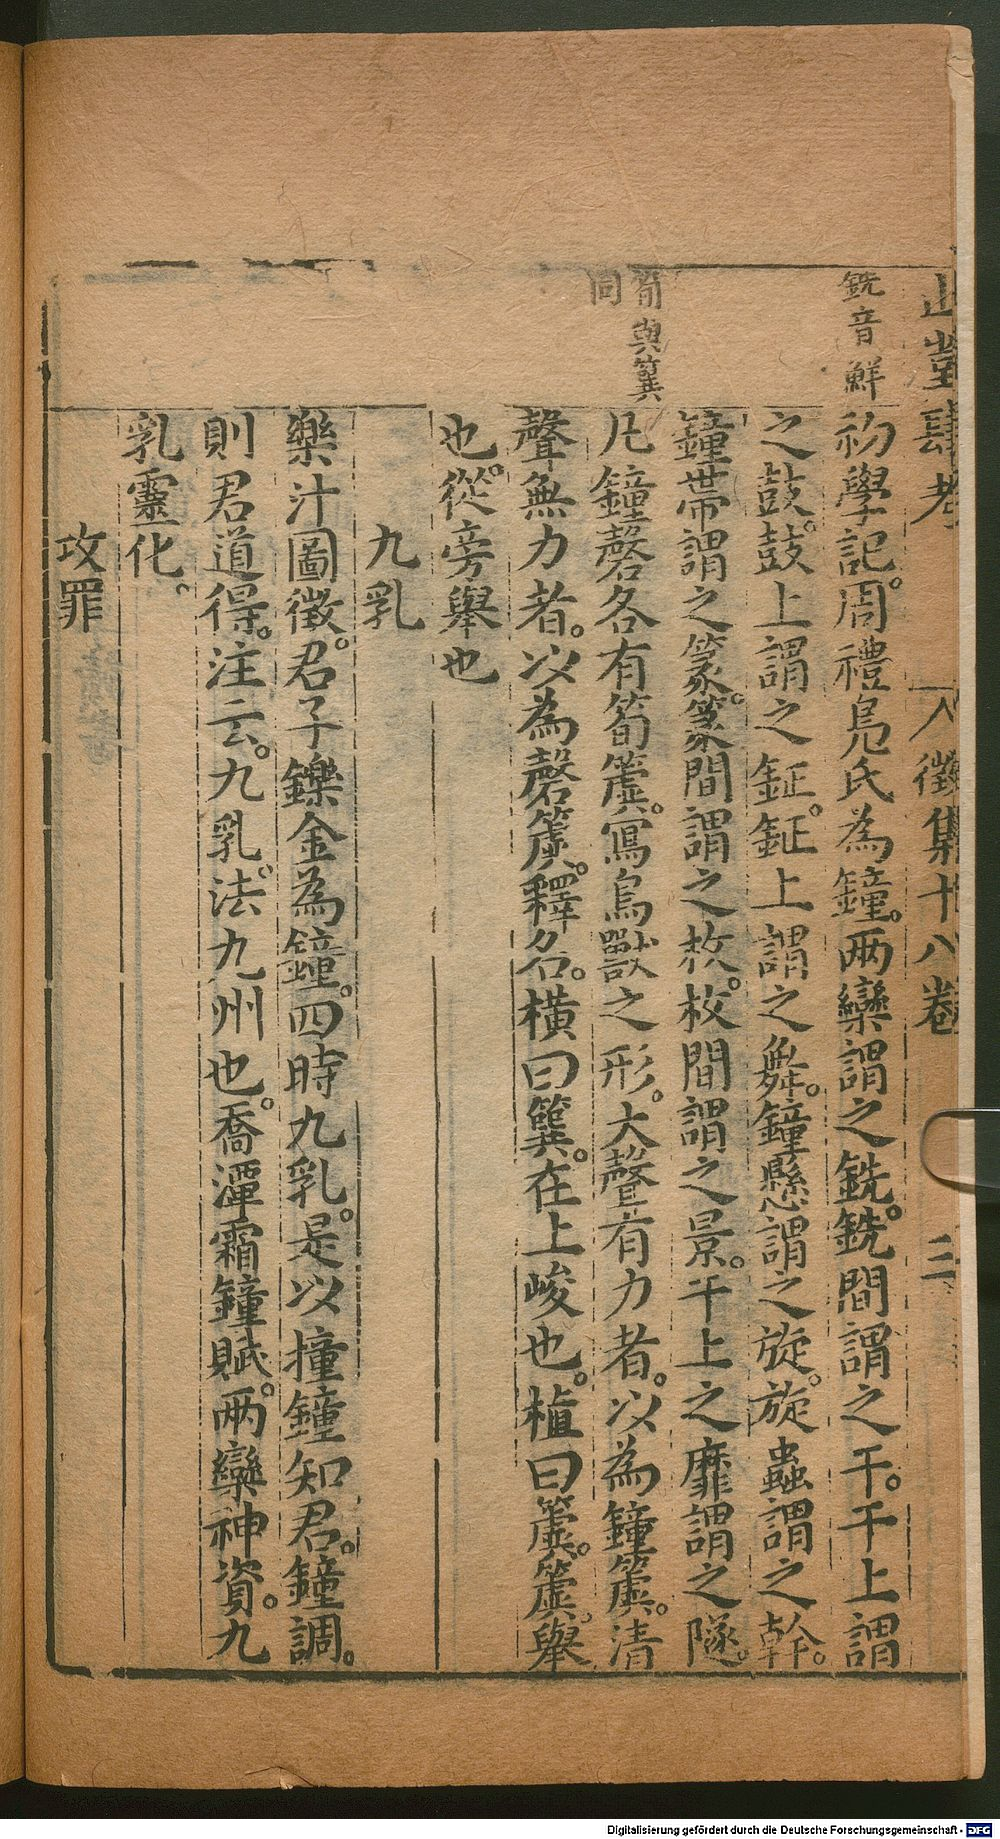 山堂肆考 徵集十八卷 三
銑音鮮
初學記。周禮鳧氏為鐘。兩欒謂之銑。銑間謂之干。干上謂
之鼓。鼓上謂之鉦。鉦上謂之舞。鐘懸謂之旋。旋蟲謂之幹。
鐘帶謂之篆。篆間謂之枚。枚間謂之景。干上之靡謂之隧。
筍與簨
同
凡鐘磬各有筍簴。寫鳥獸之形。大聲有力者。以為鐘簴。清
聲無力者。以為磬簴。釋名。橫曰簨。在上峻也。植曰簴。簴舉
也。從旁舉也
九乳
樂汁圖徵。君子鑠金為鐘。四時九乳。是以撞鐘知君。鐘調。
則君道得。注云。九乳。法九州也。喬潭霜鐘賦。兩欒神資。九
乳靈化。
攻罪
Digitalisierung gefördert durch die Deutsche Forschungsgemeinschaft - DFG